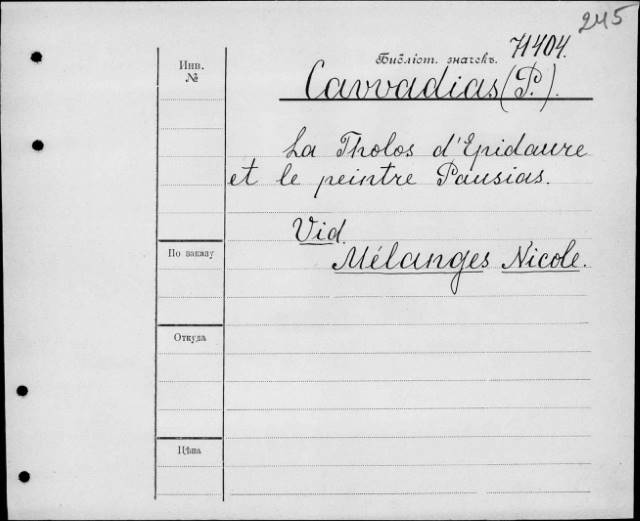 245
Инв. №
Библіот. значекъ. 71404.
Cavvadias (P.).
La Tholos d'Epidaure
et le peintre Pausias.
Vid.
Mélanges Nicole.
По заказу
Откуда
Цѣна